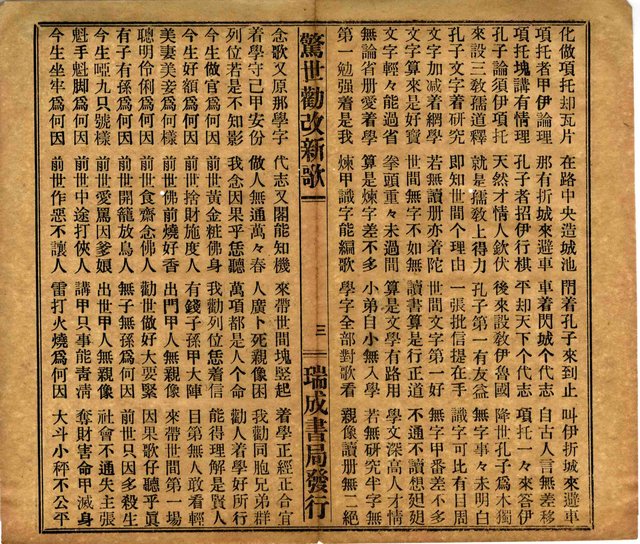 化做項托却瓦片 在路中央造城池 閉着孔子來到止 叫伊折城來避車
項托者甲伊論理 那有折城來避車 車着閃城个代志 自古人言無差移
項托塊講有情理 孔子者招伊行棋 平却天下个代志 項托一々來答伊
孔子論須伊項托 天然才情人欽伏 後來設敎伊魯國 降世孔子爲木獨
來設三敎孺道釋 就是孺敎上得力 孔子第一有友益 無字事々未明白
孔子文字着研究 即知世間个理由 一張批信提在手 識字可比有目周
文字加減着網學 若無讀册亦着陀 世間文字第一好 無字甲番差不多
文字算來是好寶 世間無字不如無 讀書算是行正道 不通不讀想
文字輕々能過省 拳頭重々未過間 算是文學有路用 學文深高人才情
無論省册愛着學 算是煉字差不多 小弟白小無入學 若無研究半字無
第一勉强着是我 煉甲識字能編歌 學字全部對歌看 親像讀册無二絕
驚世勸改新歌 三 瑞成書局發行
念歌又原那學字 代志又閣能知機 來帶世間塊竪起 着學正經正合宜
着學守己甲安份 做人無通萬々春 人廣卜死親像困 我勸同胞兄弟群
列位若是不知影 我念因果乎恁聽 萬項都是人个命 勸人着學好所行
今生做官爲何因 前世黃金粧佛身 我勸列位恁着信 能得理解是賢人
今生好額爲何因 前世捨財施度人 有錢子孫甲大陣 目第無人敢看輕
美妻美妾爲何樣 前世佛前燒好香 出門甲人無親像 來帶世間第一場
聰明伶俐爲何因 前世食齋念佛人 勸世做好大要緊 因果歌仔聽乎眞
有子有孫爲何因 前世開籠放鳥人 無子無孫爲何因 前世只因多殺生
今生啞九只號樣 前世愛罵因爹娘 出世甲人無親像 社會不通失主張
魁手魁脚爲何因 前世中途打俠人 講甲只事能靑凊 奪財害命甲滅身
今生坐牢爲何因 前世作惡不讓人 雷打火燒爲何因 大斗小秤不公平